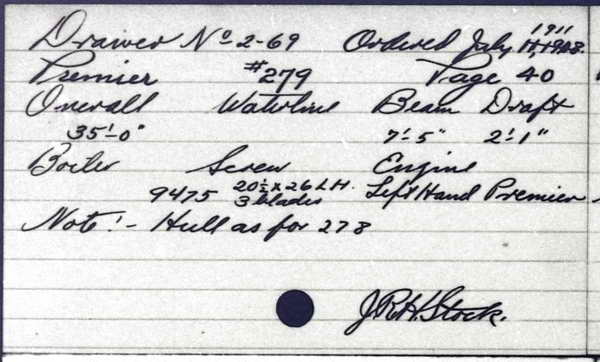 Drawer No 2-69 Ordered July 17, 1911
Premier #279 Page 40
Overall Waterline Beam Draft
35'-0" 7'-5" 2'-1"
Boiler Screw Engine
9475 20½ x 26 L.H. 3 blades Left Hand Premier
Note:- Hull as for 278
J.R.H. Stock.